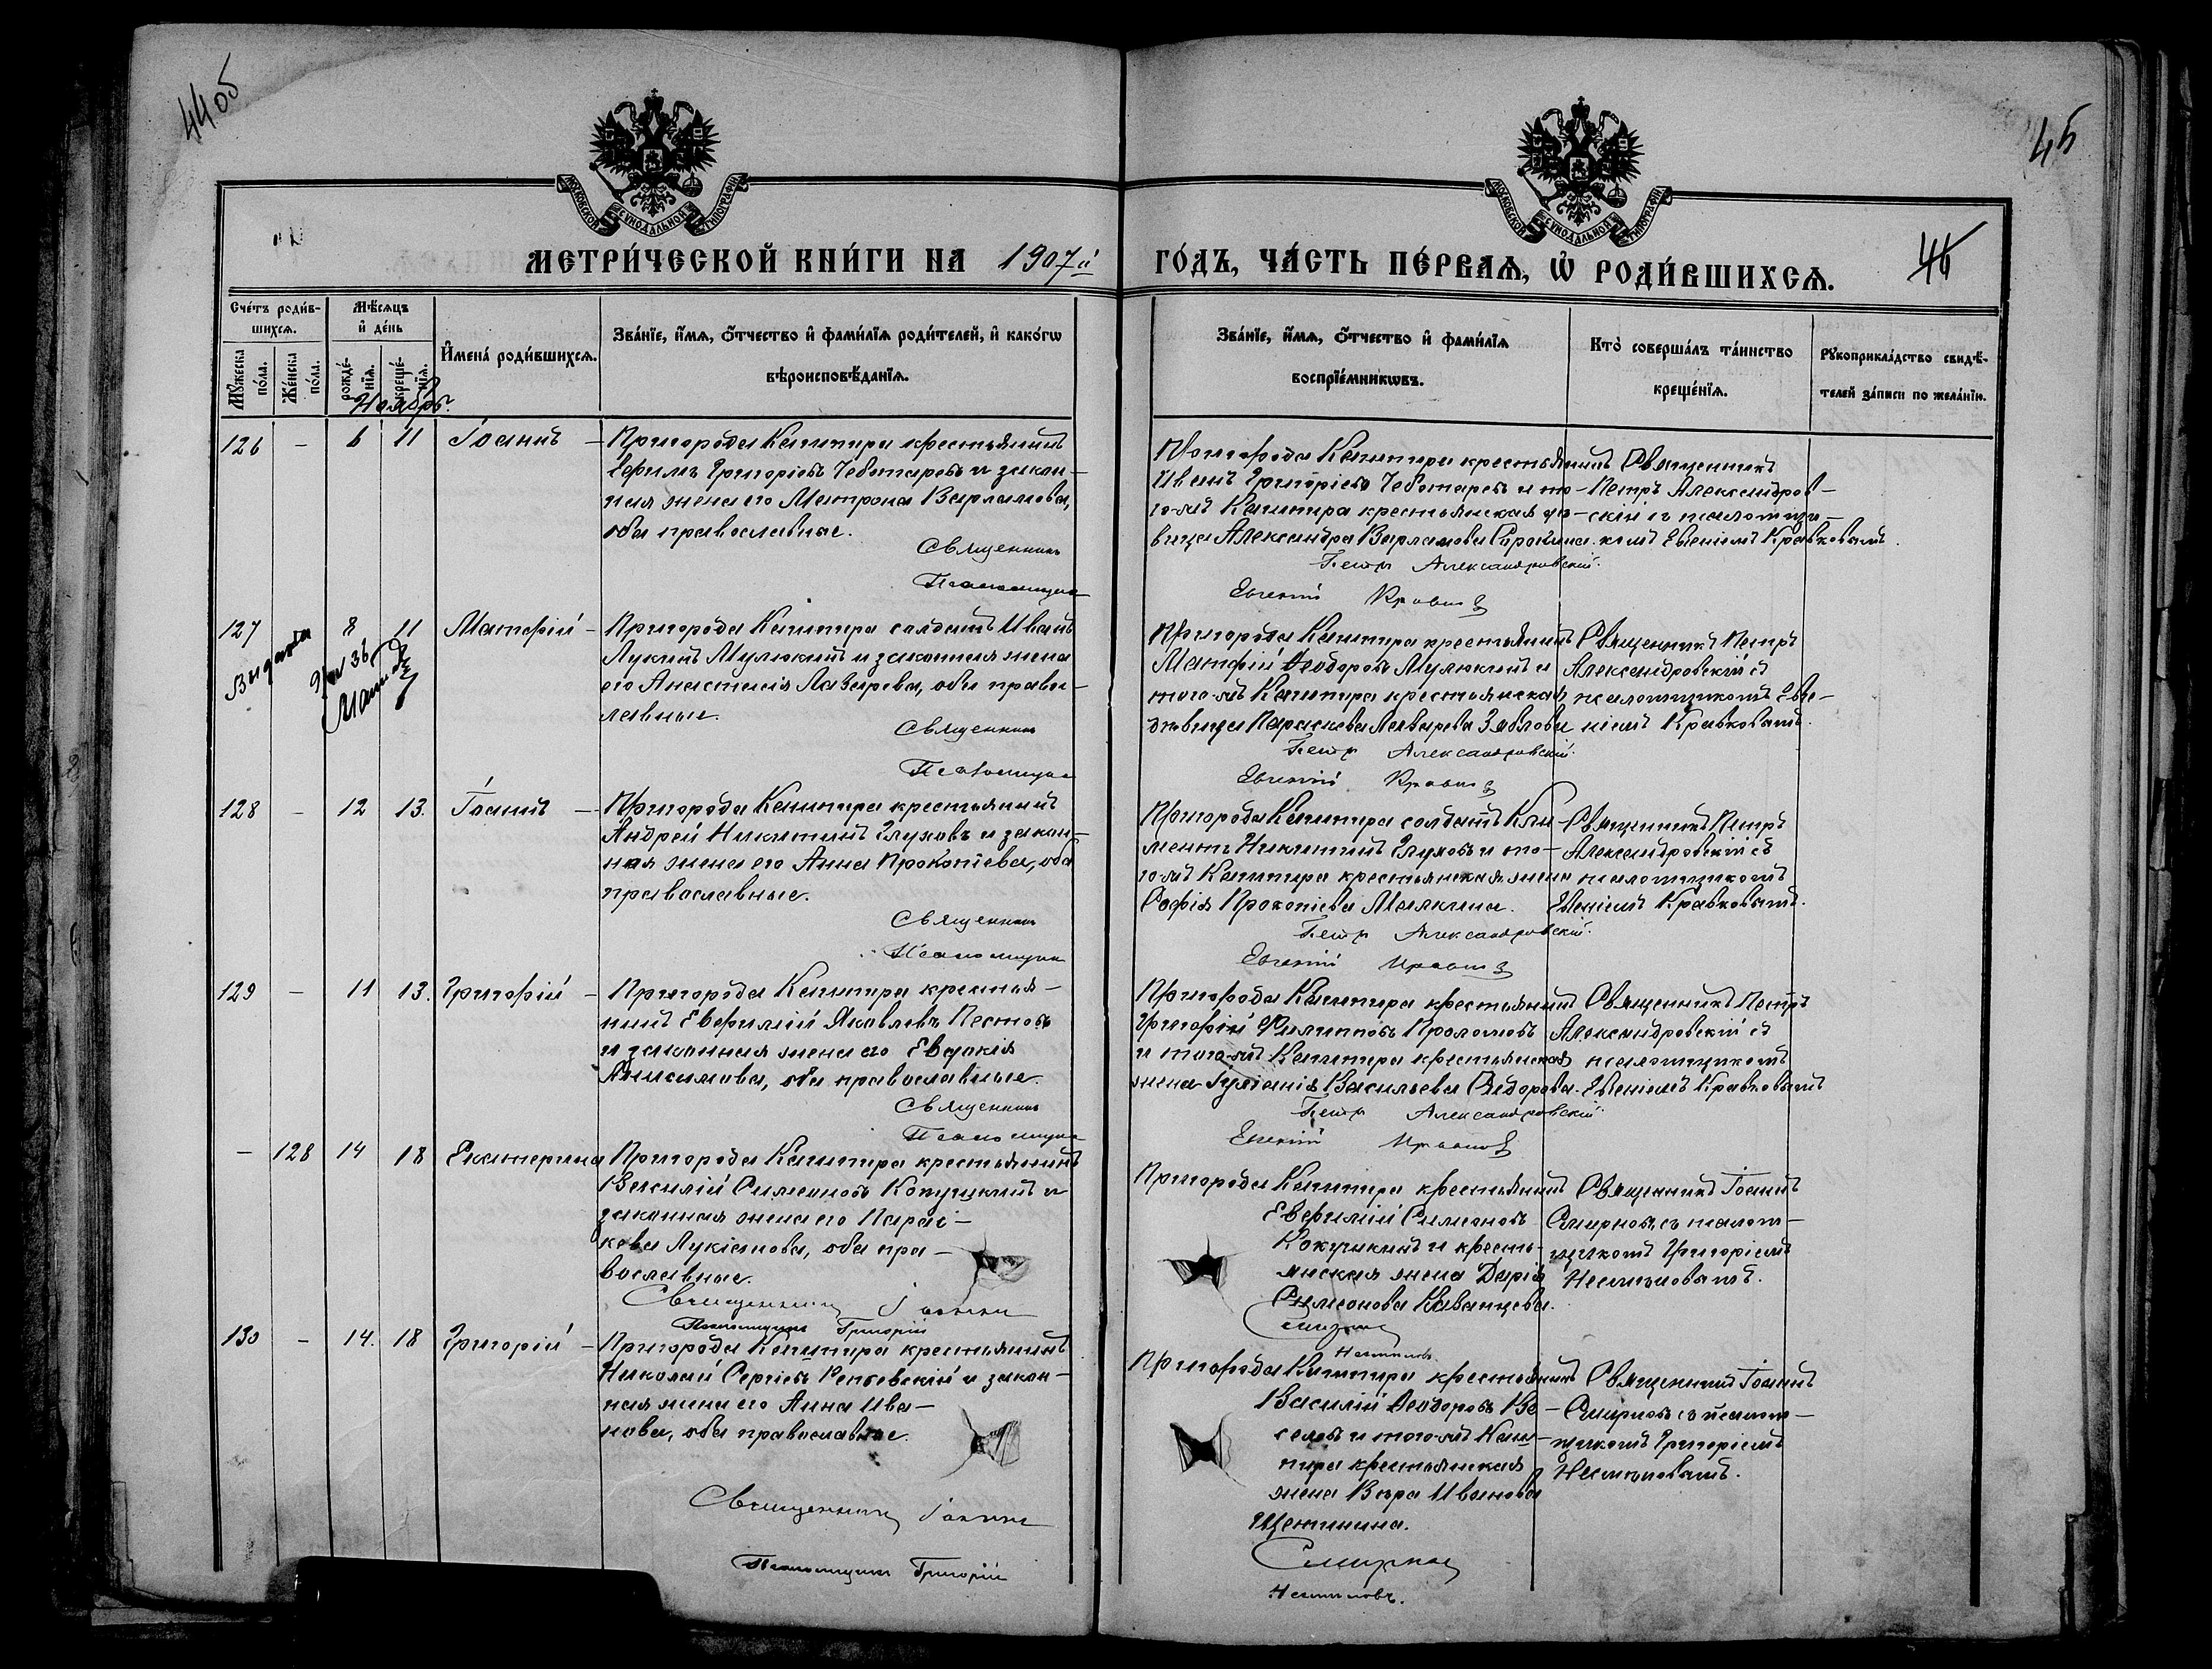 44об
45
46
МОСКОВСКОЙ СѴНОДАЛЬНОЙ ТИПОГРАФІИ
МОСКОВСКОЙ СѴНОДАЛЬНОЙ ТИПОГРАФІИ
МЕТРИ́ЧЕСКОЙ КНИ́ГИ НА 1907й ГО́ДЪ, ЧА́СТЬ ПЕ́РВАѦ, Ѽ РОДИ́ВШИХСѦ.
Сче́тъ роди́в-
шихсѧ.
Мꙋжеска по́ла.
Же́нска по́ла.
Мѣ́сѧцъ и҆ де́нь
рожде́-нїѧ.
креще́-нїѧ.
И҆мена́ роди́вшихсѧ.
Зва́нїе, и҆́мѧ, ѻ҆́тчество и҆ фами́лїѧ роди́телей, и҆ како́гѡ
вѣроисповѣ́данїѧ.
Зва́нїе, и҆́мѧ, ѻ҆́тчество и҆ фами́лїѧ
воспрїе́мникѡвъ.
Кто̀ соверша́лъ та́инство
креще́нїѧ.
Рꙋкоприкла́дство свидѣ́-
телей за́писи по жела́нїю.
Ноябрь.
126 – 6 11 Іоаннъ –
Пригорода Кашпира крестьянинъ
Ефимъ Григоріевъ Чеботаревъ и закон-
ная жена его Матрона Варламова,
оба православные.
Священникъ
Псаломщикъ
Пригорода Кашпира крестьянинъ
Иванъ Григоріевъ Чеботаревъ и то-
го-жъ Кашпира крестьянская дѣ-
вица Александра Варламова
Священникъ
Петръ Александров-
скій съ псаломщи-
комъ Евгеніемъ Кравковымъ.
Петръ Александровскій.
Евгеній
127 8 11 Матфій –
Выдана
№ 36
Пригорода Кашпира солдатъ Иванъ
Лукинъ Мулюкинъ и законная жена
его Анастасія Лазарева, оба право-
лавные.
Священникъ
Псаломщикъ
Пригорода Кашпира крестьянинъ
Матфій Ѳеодоровъ Мулюкинъ и
того-жъ Кашпира крестьянская
дѣвица Параскева Лазарева
Священникъ Петръ
Александровскій съ
псаломщикомъ Евге-
ніемъ Кравковымъ.
Петръ Александровскій.
Евгеній
128 – 12 13. Іоаннъ –
Пригорода Кашпира крестьянинъ
Андрей Никитинъ Глуховъ и закон-
ная жена его Анна Прокопіева, оба
православные.
Священникъ
Псаломщикъ
Пригорода Кашпира солдатъ Кли-
ментъ Никитинъ Глуховъ и то-
го-жъ Кашпира крестьянская жена
Софія Прокопіева Малкина.
Священникъ Петръ
Александровскій съ
псаломщикомъ
Евгеніемъ Кравковымъ.
Петръ Александровскій.
Евгеній
129 – 11 13. Григорій –
Пригорода Кашпира крестья-
нинъ Евфимій Яковлевъ Пестовъ
и законная жена его Евдокія
Анисимова, оба православные.
Священникъ
Псаломщикъ
Пригорода Кашпира крестьянинъ
Григорій Филипповъ Проломовъ
и того-жъ Кашпира крестьянская
жена Іуліанія Васильева Сидорова.
Священникъ Петръ
Александровскій съ
псаломщикомъ
Евгеніемъ Кравковымъ
Петръ Александровскій.
Евгеній
– 128 14 18 Екатерина
Пригорода Кашпира крестьянинъ
Василій Симеоновъ Кокушкинъ и
законная жена его Парас-
кева Лукіанова, оба пра-
вославные.
Священникъ Іоаннъ
Псаломщикъ Григорій
Пригорода Кашпира крестьянинъ
Евфимій Симеоновъ
Кокушкинъ и кресть-
янская жена Дарія
Симеонова Каванцева.
Священникъ Іоаннъ
Смирновъ съ псалом-
щикомъ Григоріемъ
Смирновъ
130 – 14. 18 Григорій –
Пригорода Кашпира крестьянинъ
Николай Сергіевъ Репьевскій и закон-
ная жена его Анна Ива-
нова, оба православные.
Священникъ Іоаннъ
Псаломщикъ Григорій
Пригорода Кашпира крестьянинъ
Василій Ѳеодоровъ Ве-
селовъ и того-жъ Каш-
пира крестьянская
жена Вѣра Иванова
Щетинина.
Священникъ Іоаннъ
Смирновъ съ псалом-
щикомъ Григоріемъ
Смирновъ